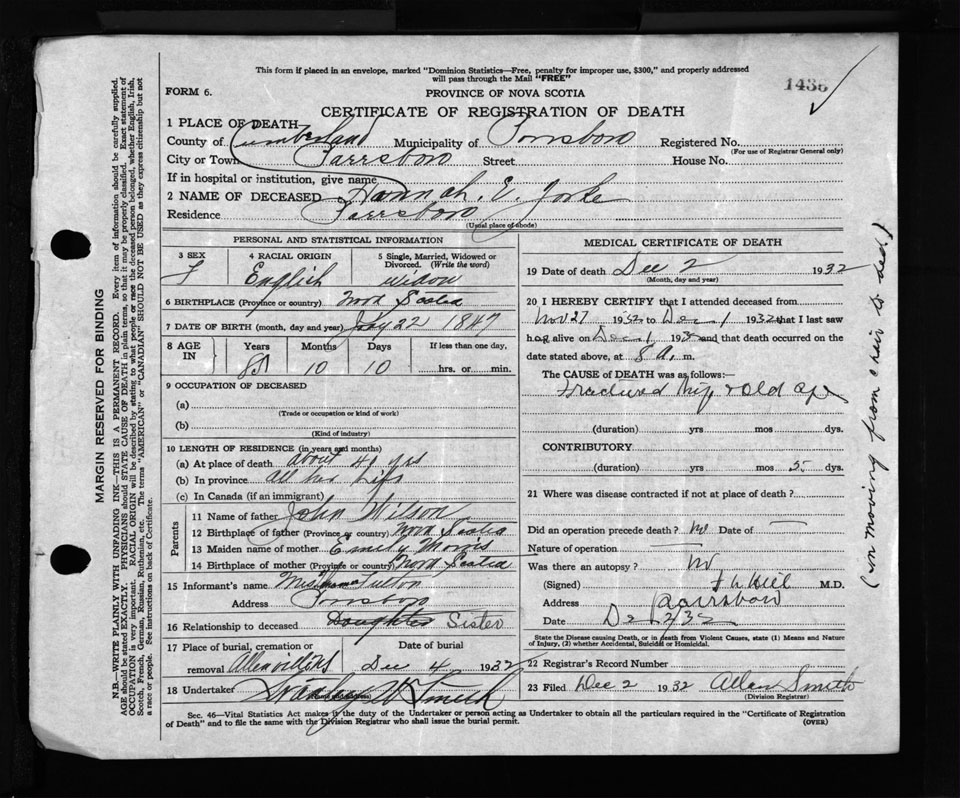 This form if placed in an envelope, marked "Dominion Statistics—Free, penalty for improper use, $300," and properly addressed
will pass through the Mail "FREE"
1436
FORM 6.
PROVINCE OF NOVA SCOTIA
CERTIFICATE OF REGISTRATION OF DEATH
1 PLACE OF DEATH
County of Cumberland Municipality of Parrsboro Registered No.
(For use of Registrar General only)
City or Town Parrsboro Street House No.
If in hospital or institution, give name
2 NAME OF DECEASED Hannah. E. Yorke
Residence Parrsboro
(Usual place of abode)
PERSONAL AND STATISTICAL INFORMATION
3 SEX 4 RACIAL ORIGIN 5 Single, Married, Widowed or Divorced. (Write the word)
F English widow
6 BIRTHPLACE (Province or country) Nova Scotia
7 DATE OF BIRTH (month, day and year) 22 1847
8 AGE IN Years Months Days If less than one day,
85 10 10 hrs. or min.
9 OCCUPATION OF DECEASED
(a)
(Trade or occupation or kind of work)
(b)
(Kind of industry)
10 LENGTH OF RESIDENCE (in years and months)
(a) At place of death about yrs
(b) In province All her Life
(c) In Canada (if an immigrant)
Parents
11 Name of father John Wilson
12 Birthplace of father (Province or country) Nova Scotia
13 Maiden name of mother Emily Morris
14 Birthplace of mother (Province or country) Nova Scotia
15 Informant's name Fulton
Address Parrsboro
16 Relationship to deceased Daughter Sister
17 Place of burial, cremation or removal Date of burial
Dec 4 1932
18 Undertaker Smith
MEDICAL CERTIFICATE OF DEATH
19 Date of death Dec 2 1932
(Month, day and year)
20 I HEREBY CERTIFY that I attended deceased from
Nov 27 1932 to Dec 1 1932 that I last saw
h alive on Dec 1 193 and that death occurred on the
date stated above, at 8 A. m.
The CAUSE of DEATH was as follows:—
Fractured hip & old age
(duration) yrs mos dys.
CONTRIBUTORY
(duration) yrs mos 5 dys.
21 Where was disease contracted if not at place of death?
Did an operation precede death? No Date of
Nature of operation
Was there an autopsy? No
(Signed) Hill M.D.
Address Parrsboro
Date Dec 2 32
State the Disease causing Death, or in death from Violent Causes, state (1) Means and Nature
of Injury, (2) whether Accidental, Suicidal or Homicidal.
22 Registrar's Record Number
23 Filed Dec 2 1932 Allan Smith
(Division Registrar)
Sec. 46—Vital Statistics Act makes it the duty of the Undertaker or person acting as Undertaker to obtain all the particulars required in the "Certificate of Registration
of Death" and to file the same with the Division Registrar who shall issue the burial permit. (OVER)
MARGIN RESERVED FOR BINDING
N.B.—WRITE PLAINLY WITH UNFADING INK—THIS IS A PERMANENT RECORD. Every item of information should be carefully supplied.
AGE should be stated EXACTLY. PHYSICIANS should STATE CAUSE OF DEATH in plain terms, so that it may be properly classified. Exact statement of
OCCUPATION is very important. RACIAL ORIGIN will be described by stating to what people or race the deceased person belonged, whether English, Irish,
Scotch, French, German, Russian, Ruthenian, etc. The terms "AMERICAN" or "CANADIAN" SHOULD NOT BE USED as they express citizenship but not
a race or people. See instructions on back of Certificate.
(in moving from chair to bed)